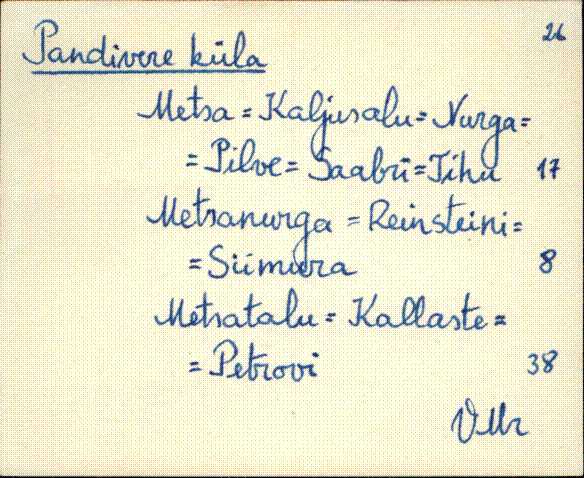 26
Pandivere küla
Metsa = Kaljusalu = Nurga =
= Pilve = Saabri = Tihu 17
Metsanurga = Reinsteini =
= Siimura 8
Metsatalu = Kallaste =
= Petrovi 38
VMr